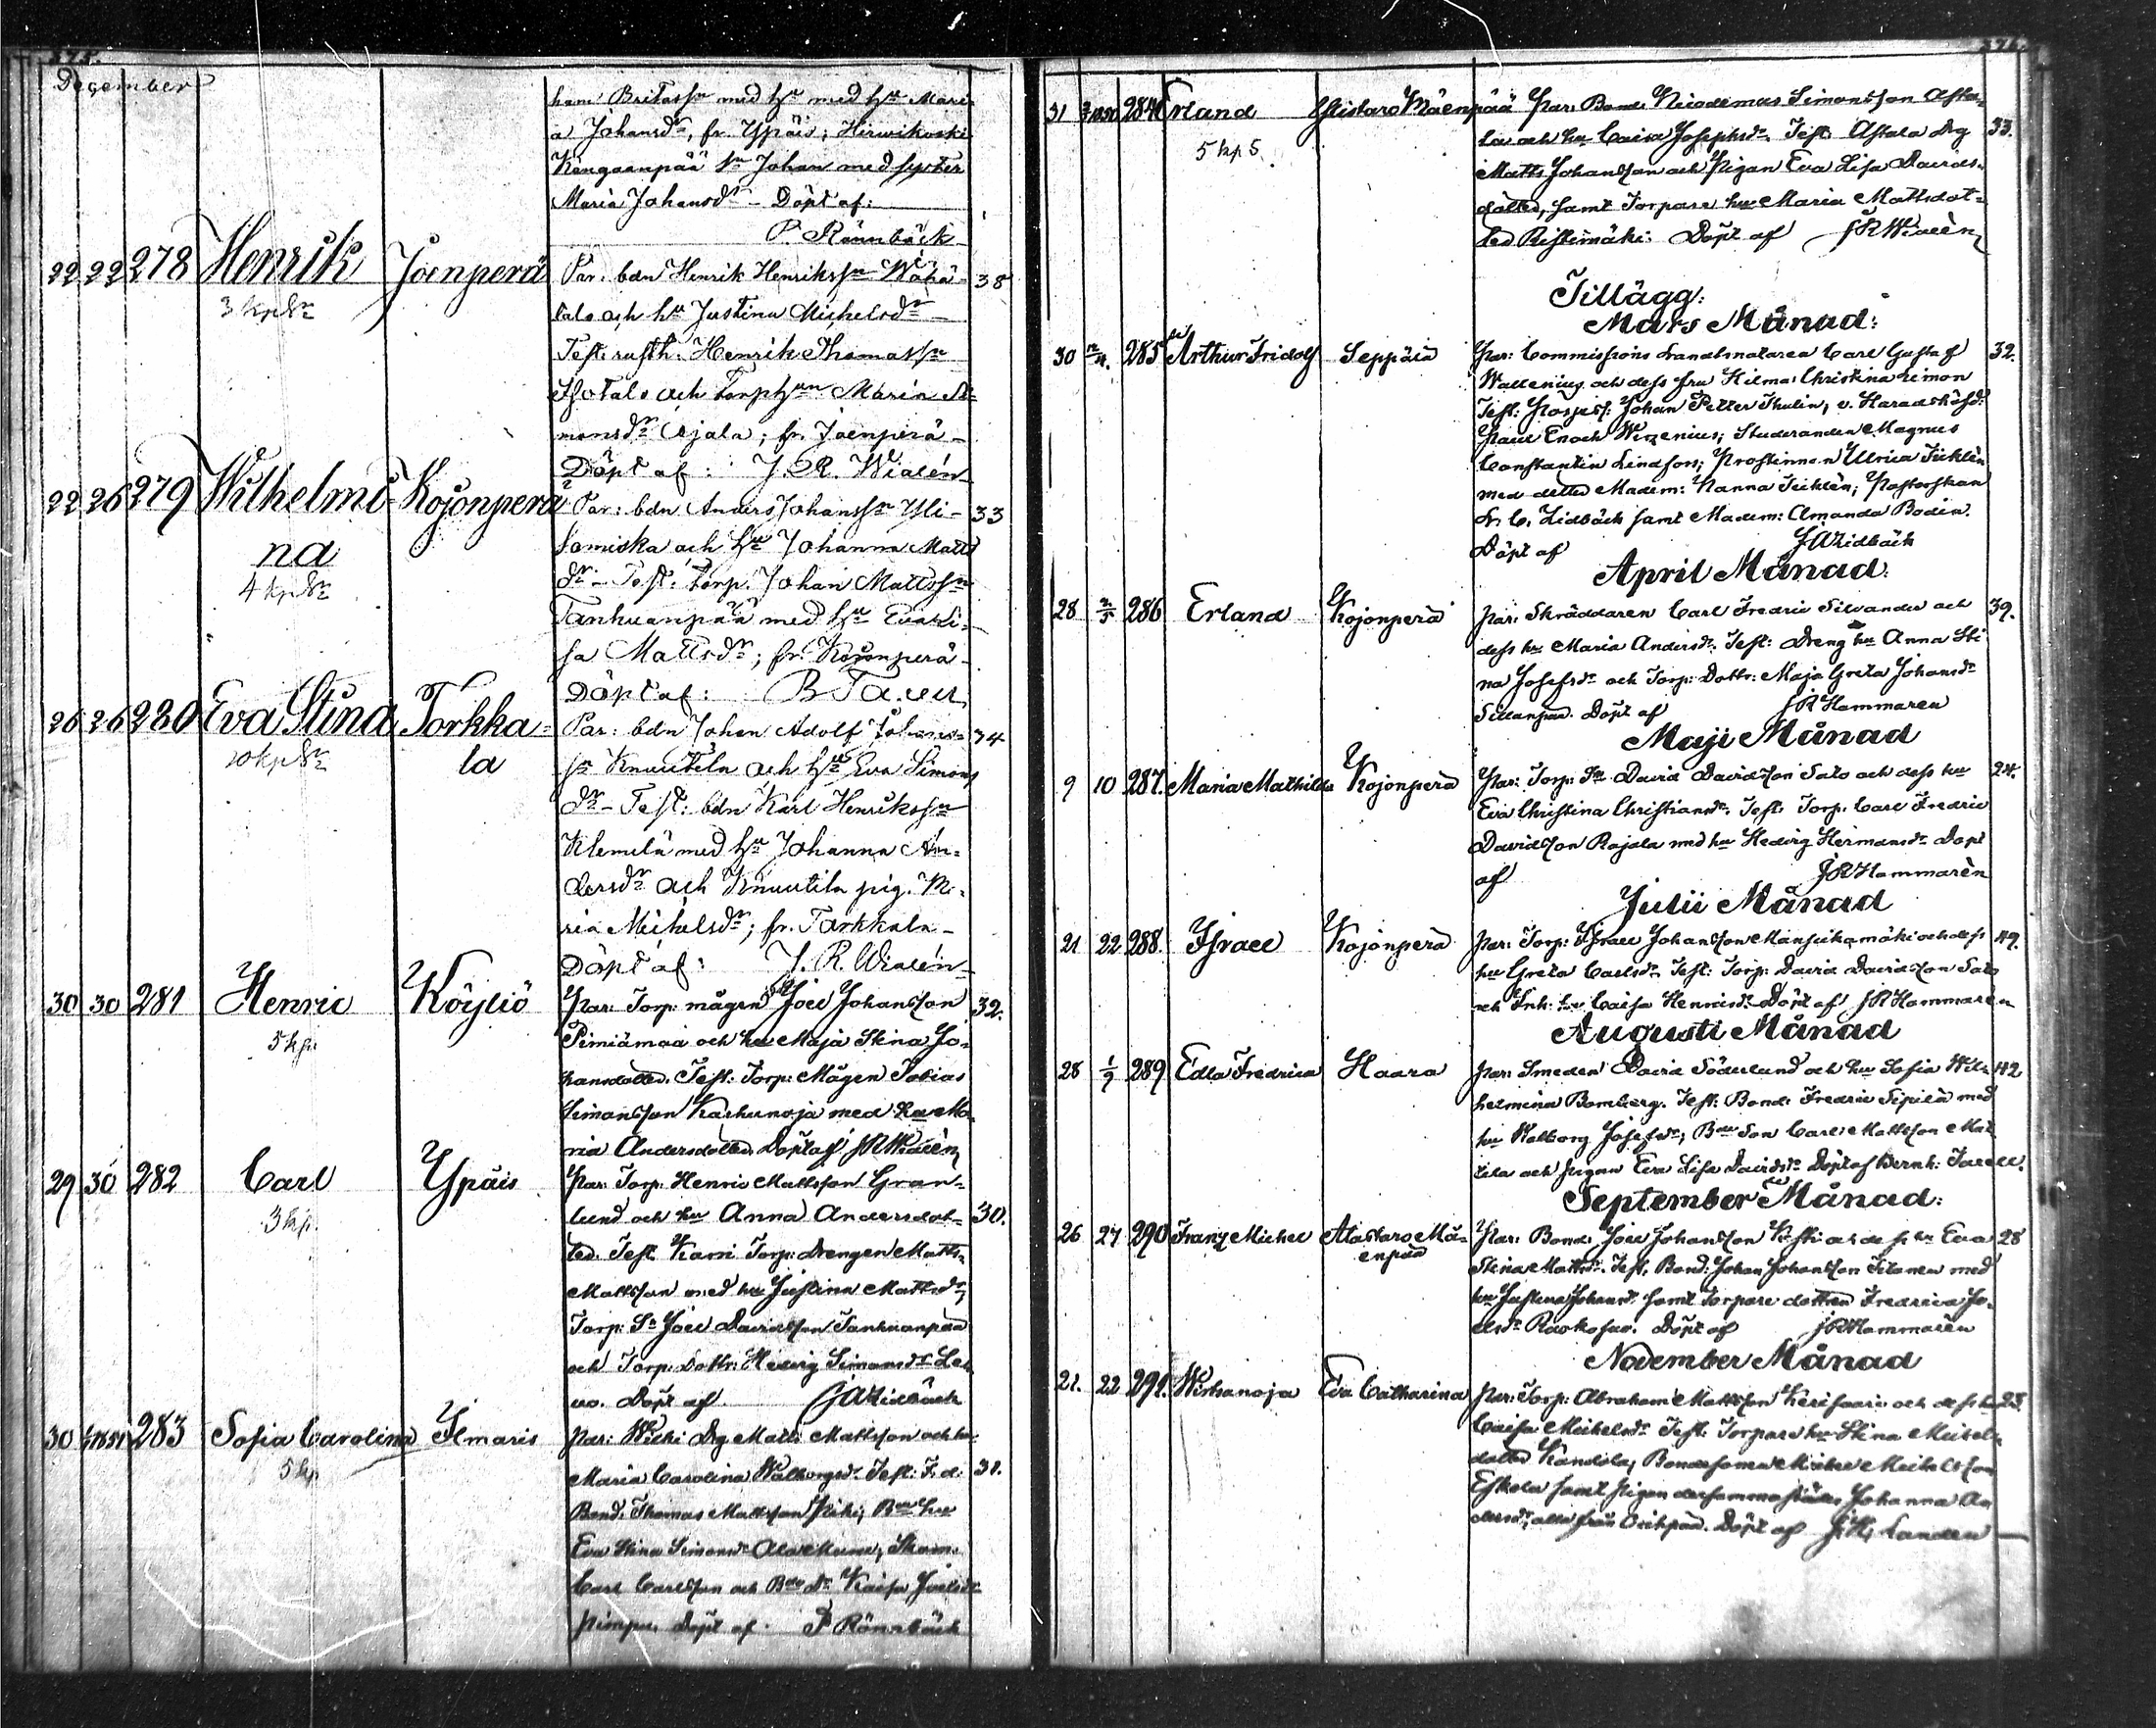 December
ham Britassn med hu med hu Mari-
a Johansdr, fr. Ypäis; Hirwikoski
Kengaanpää sn Johan med syster
Maria Johansdr - Döpt af:
P. Rännbäck
22 22 278 Henrik Joenperä Par. bdn Henrik Henrikssn Wähä- 38
3 kp Sn talo och hu Justina Michelsdr
Test: rusth: Henrik Thomassn
Isotalo och Torphun Maria Si-
monsdr Ojala; fr. Joenperä -
Döpt af: J. R. Wialén
22 26 279 Wilhelmi- Kojonperä Par: bdn Anders Johanssn Yli- 33
na Somiska och hu Johanna Matts
4 kp Sn dr - Test: torp. Johan Mattssn
Tanhuanpää med hu Eva Li-
sa Mattsdr; fr. Kojonperä -
Döpt af: B Taxell
26 26 280 Eva Stina Torkka- Par: bdn Johan Adolf Johans- 34
la sn Knuutila och hu Eva Simons
10 kp Sn dr - Test: bdn Karl Henrikssn
Klemelä med hu Johanna An-
dersdr och Knuutila pig. Ma-
ria Michelsdr; fr. Torkkala -
Döpt af: J. R. Wialén
30 30 281 Henric Köyliö Par: Torp: mågen Joel Johansson 32.
5 kp. Pimiämaa och hu Maja Stina Jo-
hansdotter. Test: Torp: Mågen Tobias
Simonsson Karhunoja med hu Ma-
ria Andersdotter Döpt af JR Wialén
29 30 282 Carl Ypäis Par: Torp: Henric Mattsson Gran-
3 kp. lund och hu Anna Andersdot- 30.
ter. Test Karri Torp: Drengen Matts
Mattsson med hu Justina Mattsdr,
Torp: Sn Joel Davidsson Tanhuanpää
och Torp: Dottr: Hedvig Simonsdr Le-
vo. Döpt af JA Zidbäck
30 283 Sofia Carolina Ilmaris Par: Drg Matts Mattsson och hu
5 kp Maria Carolina Walborgsdr. Test: F. d. 31.
Bond: Thomas Mattsson Bdn hu
Eva Stina Simonsdr
Carl Carlsson och Kaisa Joelsdr
Döpt af P Rönnbäck
31 284 Erland Ylistaro Mäenpää Par: Bond. Nicodemus Simonsson Asta-
5 kp S. la och hu Caisa Josephsdr. Test Astala Drg 33.
Matts Johansson och Pigan Eva Lisa Davids-
dotter, samt Torpare hu Maria Mattsdot-
ter Ristimäki: Döpt af JR Wialén
Tillägg:
Mars Månad:
30 285 Arthur Fridolf Seppälä Par: Commissions Landtmätaren Carl Gustaf 32.
Wallenius och dess fru Hilma Christina Limon
Test: Johan Petter Thulin, v. Häradshöfd:
Paul Enoch Wirzenius; Studeranden Magnus
Constantin Lindfors; Prostinnan Ulrica Ticklén
med dotter Madem: Nanna Ticklén; Pastorskan
Zidbäck samt Madem: Amanda Bodin.
Döpt af JA Zidbäck
April Månad:
28 2/5 286 Erland Kojonperä Par: Skräddaren Carl Fredric Silvander och 39.
dess hu Maria Andersdr. Test: Dreng hu Anna Sti
na Josefsdr och Torp: Dottr: Maja Greta Johansdr
Sillanpää. Döpt af JR Hammarén
Maji Månad
9 10 287. Maria Mathilda Kojonperä Par: Torp: Sn David Davidsson Salo och dess hu 24.
Eva Christina Christiansdr. Test: Torp. Carl Fredric
Davidsson Rajala med hu Hedvig Hermansdr Döpt
af JR Hammarén
Julii Månad
21 22 288. Israel Kojonperä Par: Torp: Israel Johansson Mansikamäki och dess 49.
hu Greta Carlsdr. Test: Torp: David Davidsson Salo
och Inh: hu Caisa Henricsdr Döpt af JR Hammarén
Augusti Månad
28 1/9 289 Edla Fredrica Haara Par: Smeden David Söderlund och hu Sofia Wil- 42
helmina Bomberg. Test: Bond: Fredric Sipilä med
hu Walborg Josefsdr; Bdn Son Carl Mattsson Mat
tila och pigan Eva Lisa Davidsdr Döpt af Bernh: Taxell.
September Månad:
26 27 290 Franz Michel Alastaro Mä- Par: Bond: Joel Johansson och dess hu Eva 28
enpää Stina Mattsdr. Test. Bond: Johan Johansson Titonen med
hu Justina Johansdr samt Torpare dottren Fredrica Jo-
elsdr Döpt af JR Hammarén
November Månad
21. 22 291. Wirhanoja Eva Catharina Par: Torp: Abraham Mattsson Kerisaari och dess hu 28.
Caisa Michelsdr Test: Torpare hu Stina Michels
dotter Kandola, Bondesonen Michel Michelsson
Eskola samt pigan dersammastädes Johanna An
dersdr; alla från Oripää. Döpt af J: H: Landen